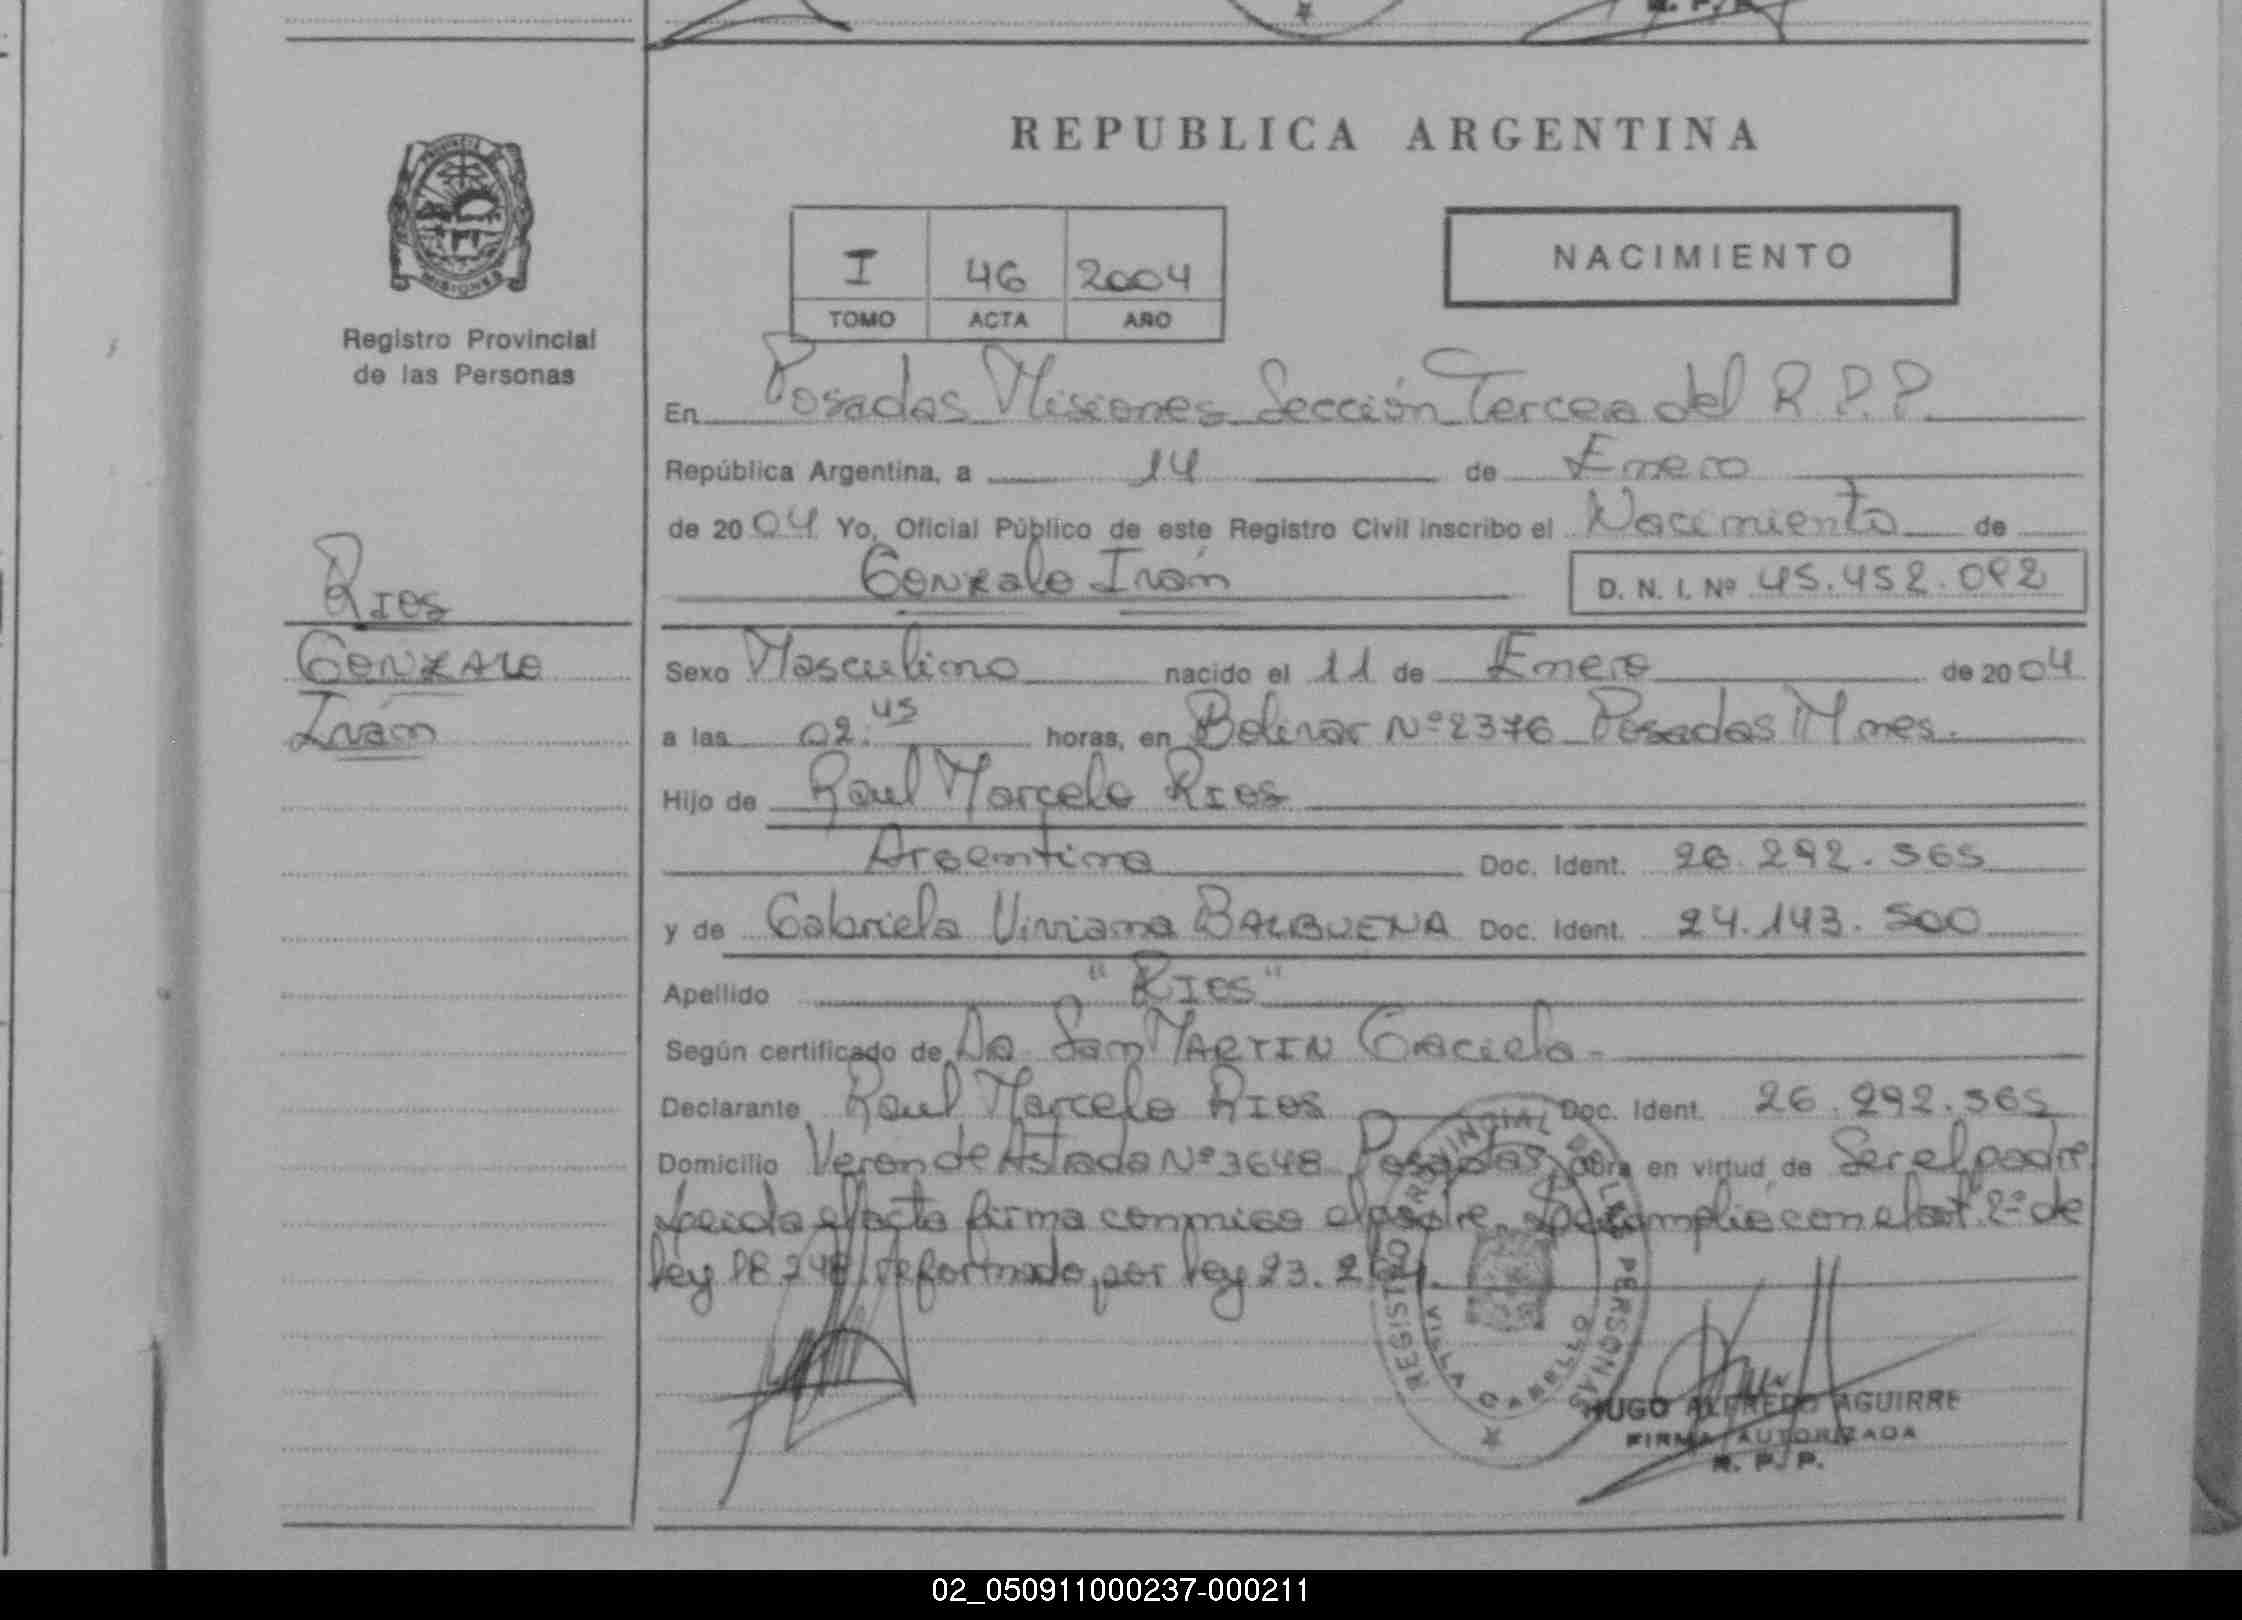 R. P. P.
REPUBLICA ARGENTINA
PROVINCIA DE MISIONES
Registro Provincial
de las Personas
I 46 2004
TOMO ACTA AÑO
NACIMIENTO
En Posadas Misiones Sección Tercera del R.P.P.
República Argentina, a 14 de Enero
de 2004 Yo, Oficial Público de este Registro Civil inscribo el Nacimiento de
Gonzalo Iván D. N. I. Nº 45.452.092
Rios
Gonzalo
Iván
Sexo Masculino nacido el 11 de Enero de 2004
a las 02:45 horas, en Bolivar Nº 2376 Posadas Mnes.
Hijo de Raul Marcelo Rios
Argentino Doc. Ident. 26.292.565
y de Gabriela Viviana BALBUENA Doc. Ident. 24.143.500
Apellido "Rios"
Según certificado de Da San MARTIN Graciela -
Declarante Raul Marcelo Rios Doc. Ident. 26.292.565
Domicilio Veron de Astrada Nº 3648 Posadas, obra en virtud de Ser el padre
Leida el acta firma conmigo el padre. Se cumplio con el art. 2º de
ley 18.248 reformado por ley 23.264.
REGISTRO PROVINCIAL DE LAS PERSONAS
VILLA CABELLO
HUGO ALFREDO AGUIRRE
FIRMA AUTORIZADA
R. P. P.
02_050911000237-000211